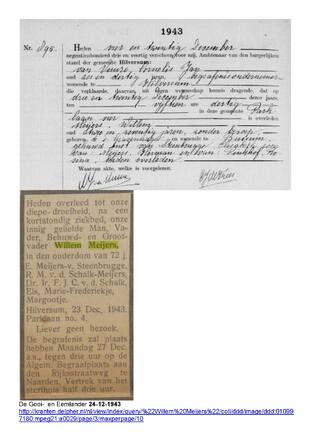 1943
Nr. 898. Heden vier en twintig December
negentienhonderd drie en veertig verscheen voor mij, Ambtenaar van den burgerlijken
stand der gemeente Hilversum:
van Vuure, Cornelis Jan
oud zes en dertig jaar, begrafenisondernemer
wonende te Hilversum
die verklaarde, daarvan uit eigen wetenschap kennis dragende, dat op
drie en twintig December
uur dertig in deze gemeente Park
Meijers, Willem is overleden
oud en zeventig jaren, zonder beroep,
geboren te 's Gravenhage en wonende te Bussum,
gehuwd met van Steenbrugge
van Meijers, Herman en van
heiden overleden
Waarvan akte, welke is voorgelezen.
Heden overleed tot onze
diepe droefheid, na een
kortstondig ziekbed, onze
innig geliefde Man, Va-
der, Behuwd- en Groot-
vader Willem Meijers,
in den ouderdom van 72 j.
E. Meijers-v. Steenbrugge,
R. M. v. d. Schalk-Meijers,
Dr. Ir. F. J. C. v. d. Schalk,
Els, Marie-Frederiekje,
Margootje.
Hilversum, 23 Dec. 1943.
Parklaan no. 4.
Liever geen bezoek.
De begrafenis zal plaats
hebben Maandag 27 Dec.
a.s., tegen drie uur op de
Algem. Begraafplaats aan
den Rijksstraatweg te
Naarden. Vertrek van het
sterfhuis half drie uur.
De Gooi- en Eemlander 24-12-1943
http://kranten.delpher.nl/nl/view/index/query/%22Willem%20Meijers%22/coll/ddd/image/ddd:01099
7180:mpeg21:a0029/page/3/maxperpage/10